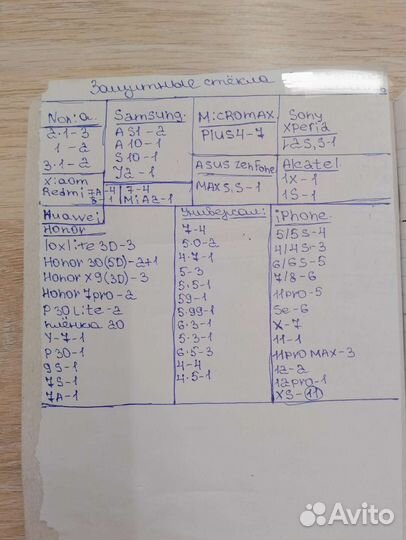 Защитные стёкла
Nokia
2.1-3
1-2
3.1-2
Samsung.
A S1-2
A 10-1
S 10-1
J2-1
MICROMAX
Plus4-7
Sony
Xperia
L2S,S-1
Xiaom
Redmi 7A-4
8-1
7-4
MiA2-1
ASUS ZenFone
MAX S,S-1
Alcatel
1X-1
1S-1
Huawei
Honor
10x lite 3D-3
Honor 30(5D)-2+1
Honor X9(3D)-3
Honor 7pro-2
P30Lite-2
плёнка 20
Y-7-1
P30-1
9S-1
7S-1
7A-1
Универсал:
7-4
5.0-2
4.7-1
5-3
5.5-1
59-1
5.99-1
6.3-1
5.3-1
6.5-3
4-4
4.5-1
iPhone.
5/5S-4
4/4S-3
6/6S-5
7/8-6
11pro-5
Se-6
X-7
11-1
11PRO MAX-3
12-2
12pro-1
XS-11
Avito